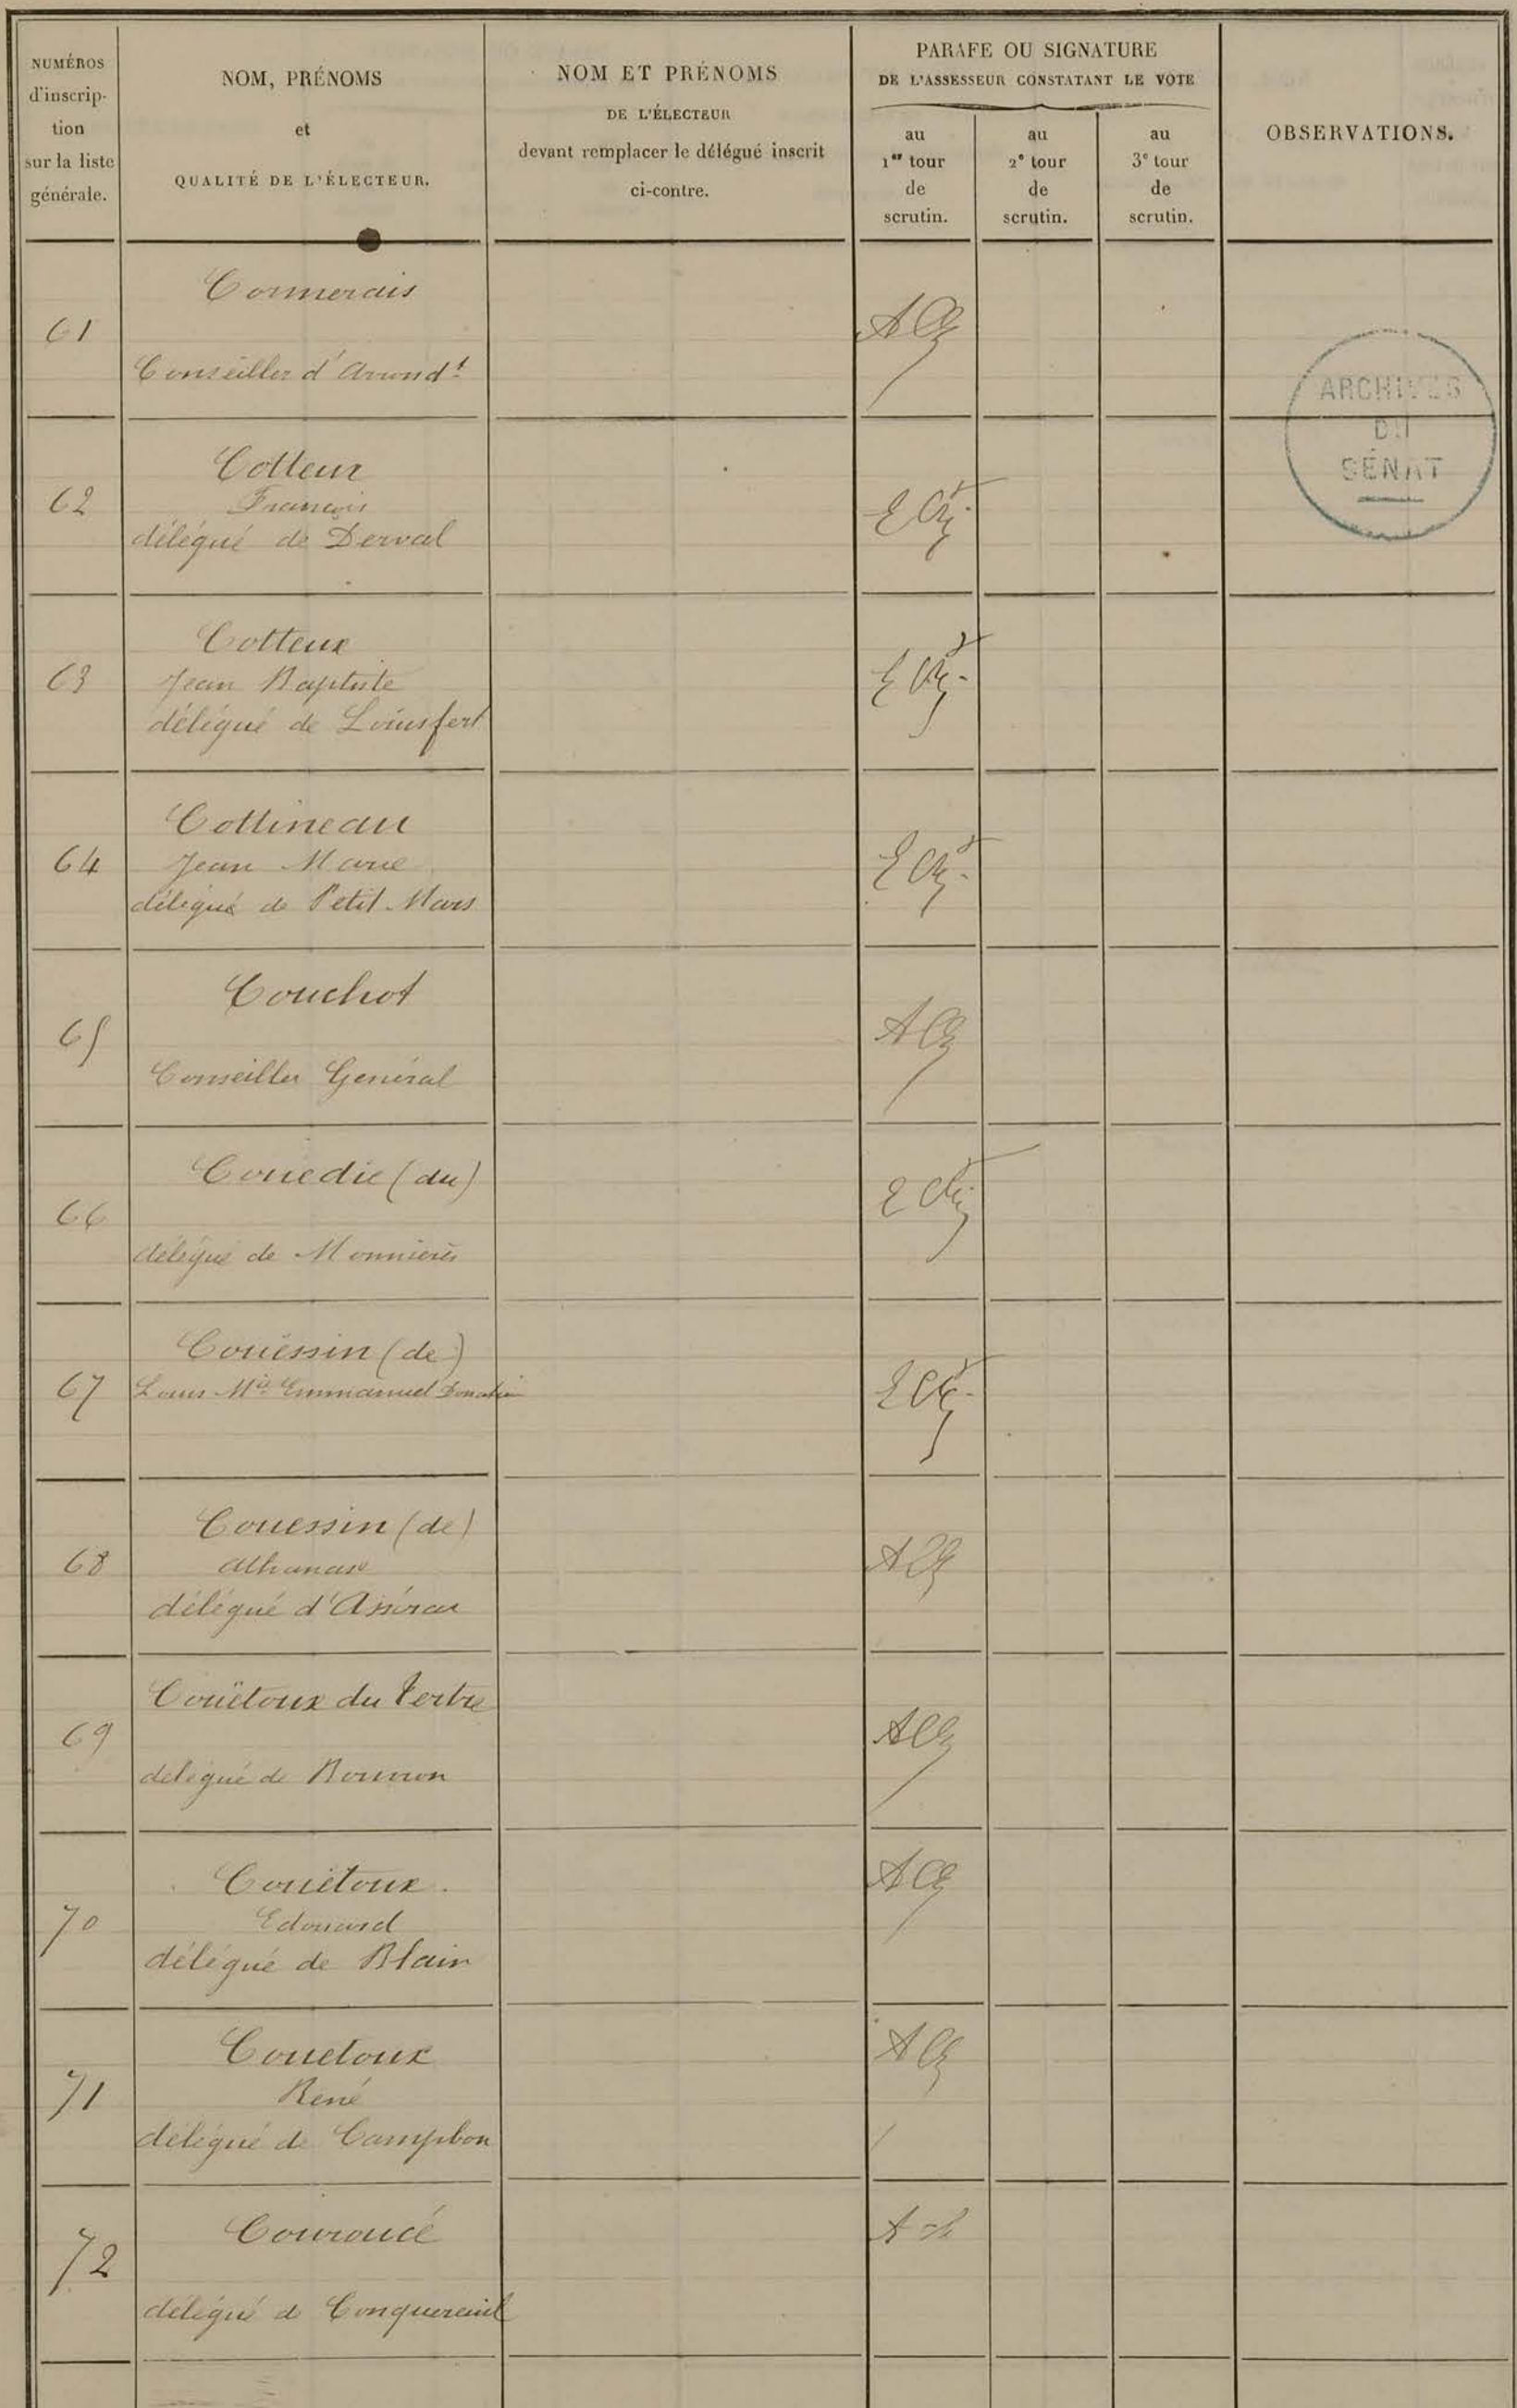 NUMÉROS
d'inscrip-
tion
sur la liste
générale.
NOM, PRÉNOMS
et
QUALITÉ DE L'ÉLECTEUR.
NOM ET PRÉNOMS
DE L'ÉLECTEUR
devant remplacer le délégué inscrit
ci-contre.
PARAFE OU SIGNATURE
DE L'ASSESSEUR CONSTATANT LE VOTE
au
1er tour
de
scrutin.
au
2e tour
de
scrutin.
au
3e tour
de
scrutin.
OBSERVATIONS.
ARCHIVES
DU
SÉNAT
61
Cormerais
Conseiller d'Arrondt
62
Cotteux
François
délégué de Derval
63
Cotteux
Jean Baptiste
délégué de Louisfert
64
Cottineau
Jean Marie
délégué de Petit-Mars
65
Couchot
Conseiller Général
66
Couëdic (du)
délégué de Monnières
67
Couëssin (de)
Louis Mie Emmanuel Donatien
68
Couessin (de)
Athanase
délégué d'Assérac
69
Couëtoux du Tertre
délégué de Bouvron
70
Couëtoux
Edouard
délégué de Blain
71
Couetoux
René
délégué de Campbon
72
Couroucé
délégué de Conquereuil